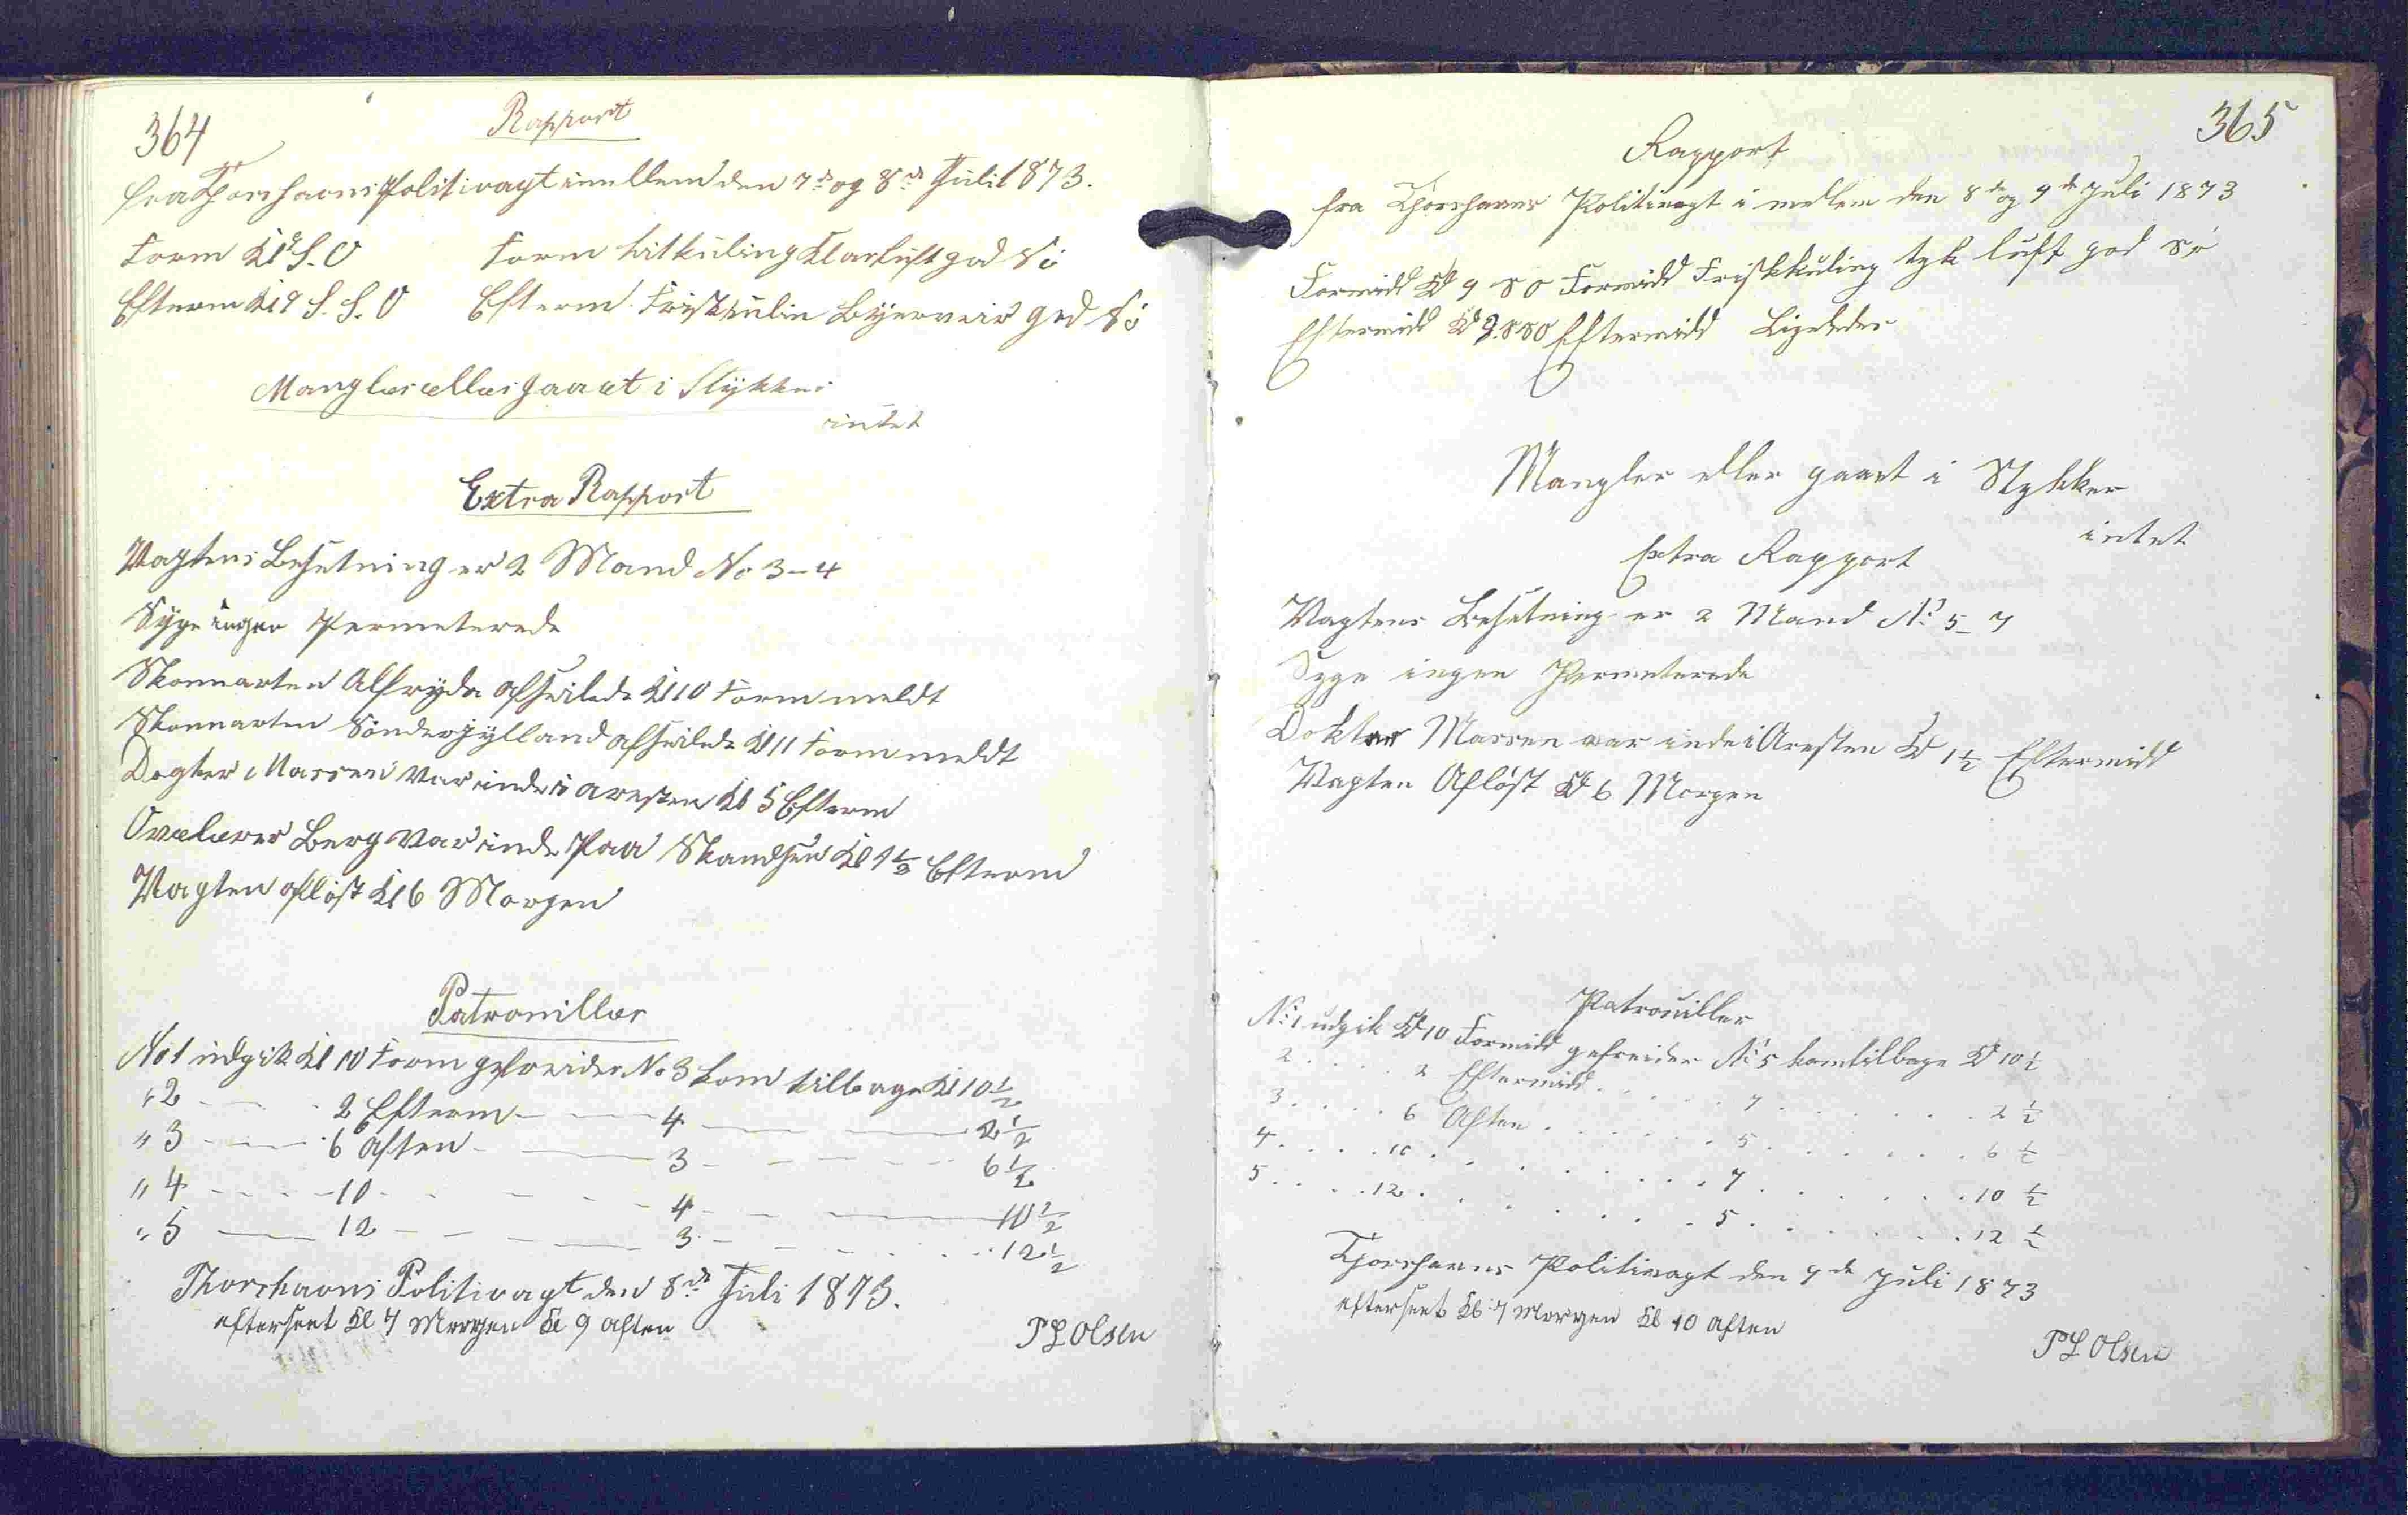 364
Rapport
fra Thorshavns Politivagt imellem den 7de og 8de Juli 1873.
Form Kl 9 S. O Form litkuling Klarluft god Sö
Efterm Kl 9 S. S. O Efterm. Friskkulin Byerveir god Sö
Mangler eller gaaet i Stykker
intet
Extra Rapport
Vagtens Besetning er 2 Mand No 3-4
Syge ingen Permeterede
Skonnarten Alfryda afseilede Kl 10 Form meldt
Skonnarten Sönderjylland afseilede Kl 11 Form meldt
Dogter Massen Var inde i aresten Kl 5 Efterm
Overlærer Berg Var inde Paa Skandsen Kl 4½ Efterm
Vagten aflöst Kl 6 Morgen
Patrouiller
No 1 udgik Kl 10 Form gefreider No 3 kom tilbage Kl 10½
" 2 - - - 2 Efterm - - - 4 - - - 2½
" 3 - - - 6 Aften - - - 3 - - - 6½
" 4 - - - 10 - - - 4 - - - 10½
" 5 - - - 12 - - - 3 - - - 12½
Thorshavns Politivagt den 8de Juli 1873.
efterseet Kl 7 Morgen Kl 9 aften
P L Olsen
365
Rapport
fra Thorshavns Politivagt i mellem den 8de og 9de Juli 1873
Formidd Kl 9 SO Formidd Friskkuling tyk luft god sö
Eftermidd Kl 9. SSO Eftermidd Ligeledes
Mangler eller gaaet i Stykker
intet
Extra Rapport
Vagtens Besetning er 2 Mand No 5-7
Syge ingen Permeterede
Doktor Massen var inde i Aresten Kl 1½ Eftermidd
Vagten Aflöst Kl 6 Morgen
Patrouiller
No 1 udgik Kl 10 Formidd gefreider No 5 kom tilbage Kl 10½
2 . . . . 2 Eftermidd . . . . 7 . . . . 2½
3 . . . . 6 Aften . . . . 5 . . . . 6½
4 . . . . 10 . . . . 7 . . . . 10½
5 . . . . 12 . . . . 5 . . . . 12½
Thorshavns Politivagt den 9de Juli 1873
efterseet Kl 7 Morgen Kl 10 aften
P L Olsen